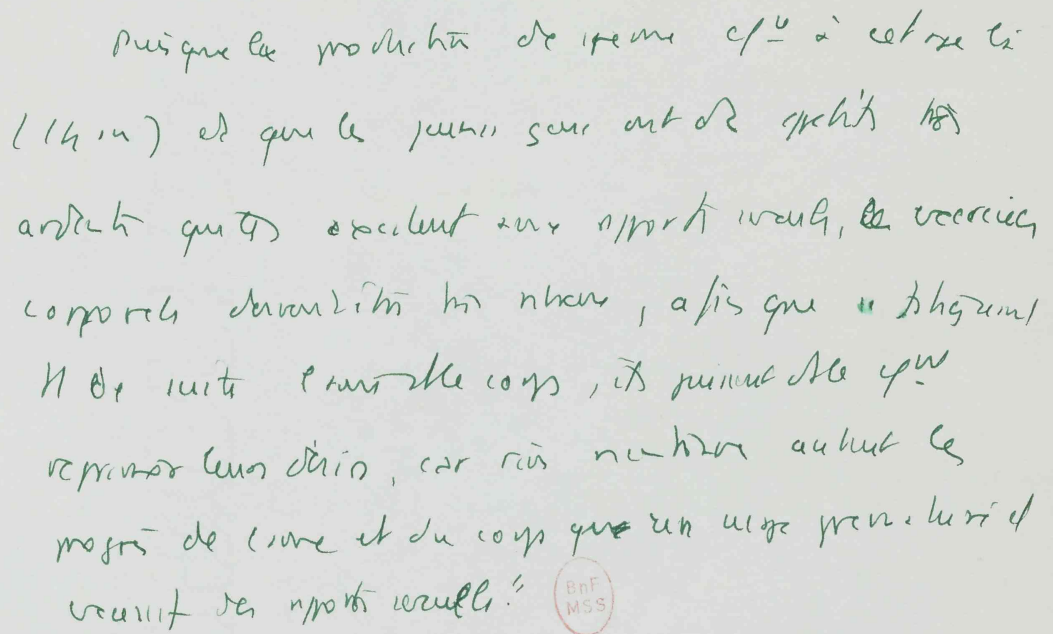 Puisque la production de sperme cpce à cet age là
(14 ans) et que les jeunes gens ont des appétits très
ardents qui les excitent aux rapports sexuels, les exercices
corporels devront être très , afin que fatiguant
tt de suite l'ame et le corps, ils puissent dès le
reprimer leurs désirs, car rien ne autant les
progrès de l'ame et du corps que un usage prematuré et
excessif des rapports sexuels."
BnF
MSS